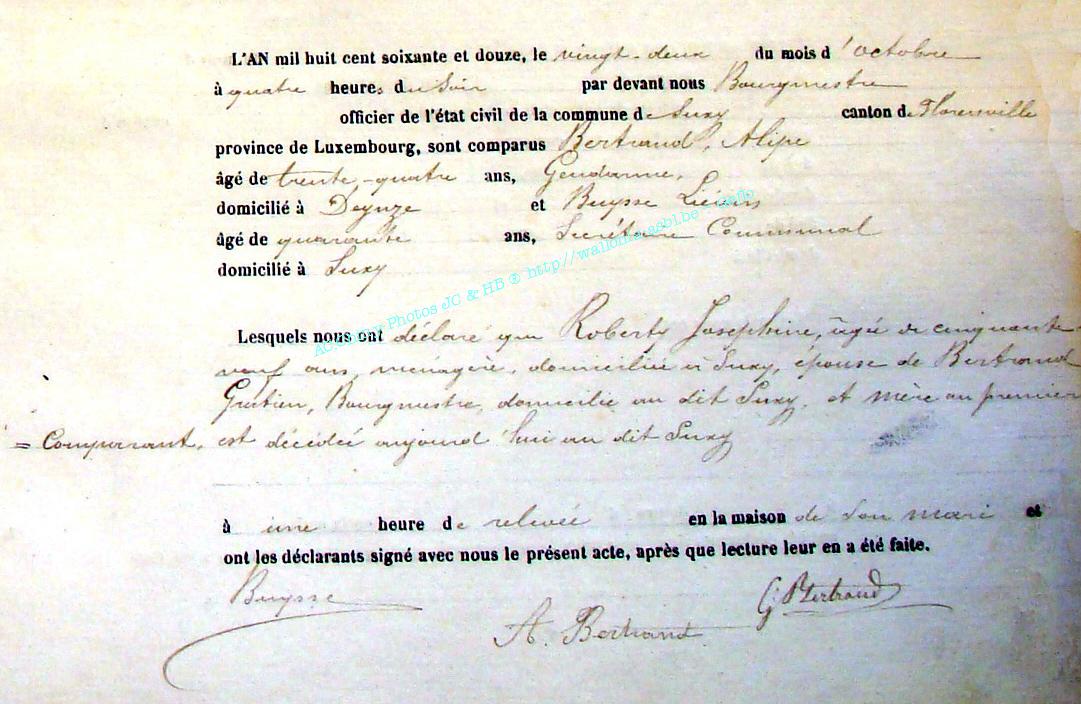 L'AN mil huit cent soixante et douze, le vingt-deux du mois d'octobre
à quatre heures du Soir par devant nous Bourgmestre
officier de l'état civil de la commune de Suxy canton de Florenville
province de Luxembourg, sont comparus Bertrand, Alipe
âgé de trente-quatre ans, Gendarme,
domicilié à Deynze et Buysse Liévin
âgé de quarante ans, Secrétaire Communal
domicilié à Suxy
Photos JC & HB @ http//wallonia.asbl.be
Lesquels nous ont déclaré que Roberty Josephine, âgée de cinquante
neuf ans, ménagère, domiciliée à Suxy, épouse de Bertrand
Gratien, Bourgmestre, domicilié au dit Suxy, et mère au premier
= Comparant, est décédée aujourd'hui au dit Suxy
à une heure de relevée en la maison de son mari et
ont les déclarants signé avec nous le présent acte, après que lecture leur en a été faite.
Buysse G Bertrand
A. Bertrand